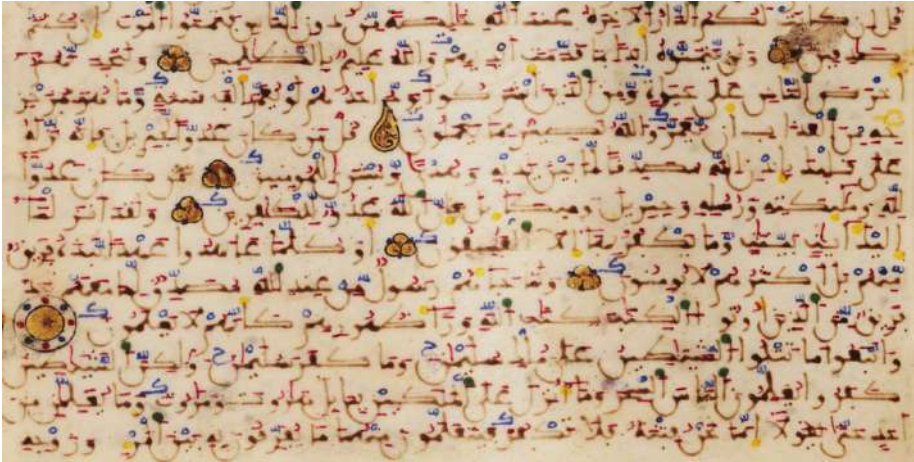 قل ان كانت لكم الدار الاخرة عند الله خالصة من دون الناس فتمنوا الموت ان كنتم
صدقين ولن يتمنوه ابدا بما قدمت ايديهم والله عليم بالظلمين ولتجدنهم
احرص الناس على حيوة ومن الذين اشركوا يود احدهم لو يعمر الف سنة وما هو بمزحز
حه من العذاب ان يعمر والله بصير بما يعملون قل من كان عدوا لجبريل فانه نزله
على قلبك باذن الله مصدقا لما بين يديه وهدى وبشرى للمومنين من كان عدوا
لله وملئكته ورسله وجبريل وميكئل فان الله عدو للكفرين ولقد انزلنا
اليك ايت بينت وما يكفر بها الا الفسقون او كلما عهدوا عهدا نبذه فريق
منهم بل اكثرهم لا يومنون ولما جاءهم رسول من عند الله مصدق لما معهم نبذ
فريق من الذين اوتوا الكتب كتب الله وراء ظهورهم كانهم لا يعلمون
واتبعوا ما تتلوا الشيطين على ملك سليمن وما كفر سليمن ولكن الشيطين
كفروا يعلمون الناس السحر وما انزل على الملكين ببابل هروت ومروت وما يعلمن من
احد حتى يقولا انما نحن فتنة فلا تكفر فيتعلمون منهما ما يفرقون به بين المرء وزوجه